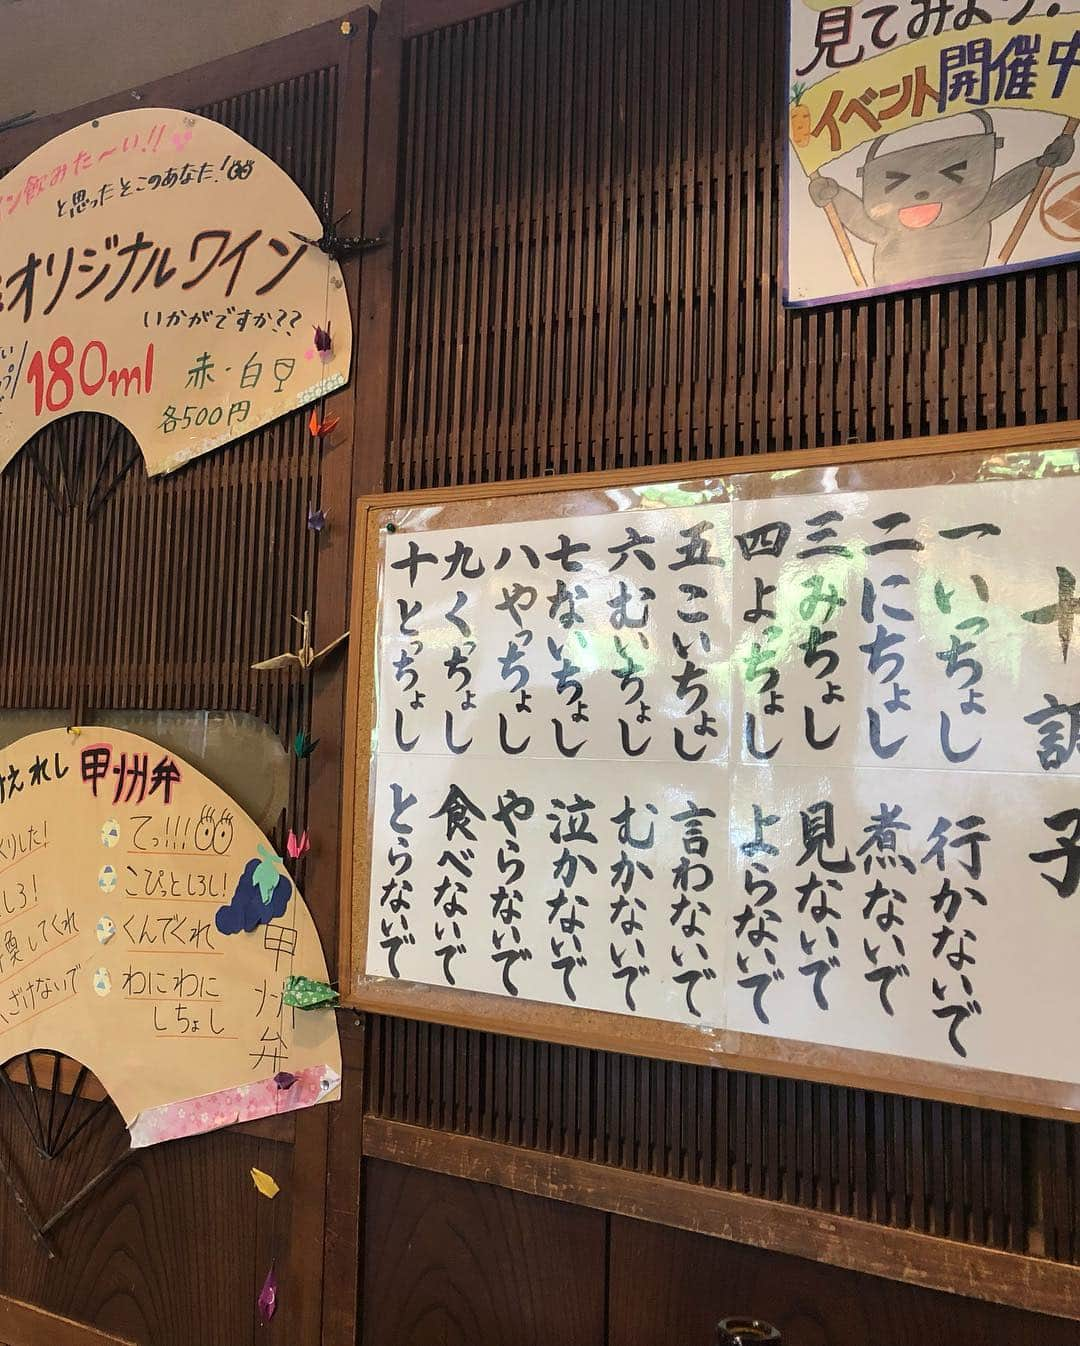 イン飲みた〜い!!
と思ったそこのあなた!
オリジナルワイン
いかがですか??
180ml
赤・白
各500円
見てみよう!
イベント開催中
十調子
一 いっちょし 行かないで
二 にちょし 煮ないで
三 みちょし 見ないで
四 よっちょし よらないで
五 こいちょし 言わないで
六 むいちょし むかないで
七 ないちょし 泣かないで
八 やっちょし やらないで
九 くっちょし 食べないで
十 とっちょし とらないで
えれし 甲州弁
くりした!
てっ!!!
しろ!
こぴっとしろし!
換してくれ
くんでくれ
ざけないで
わにわに
しちょし
甲州弁